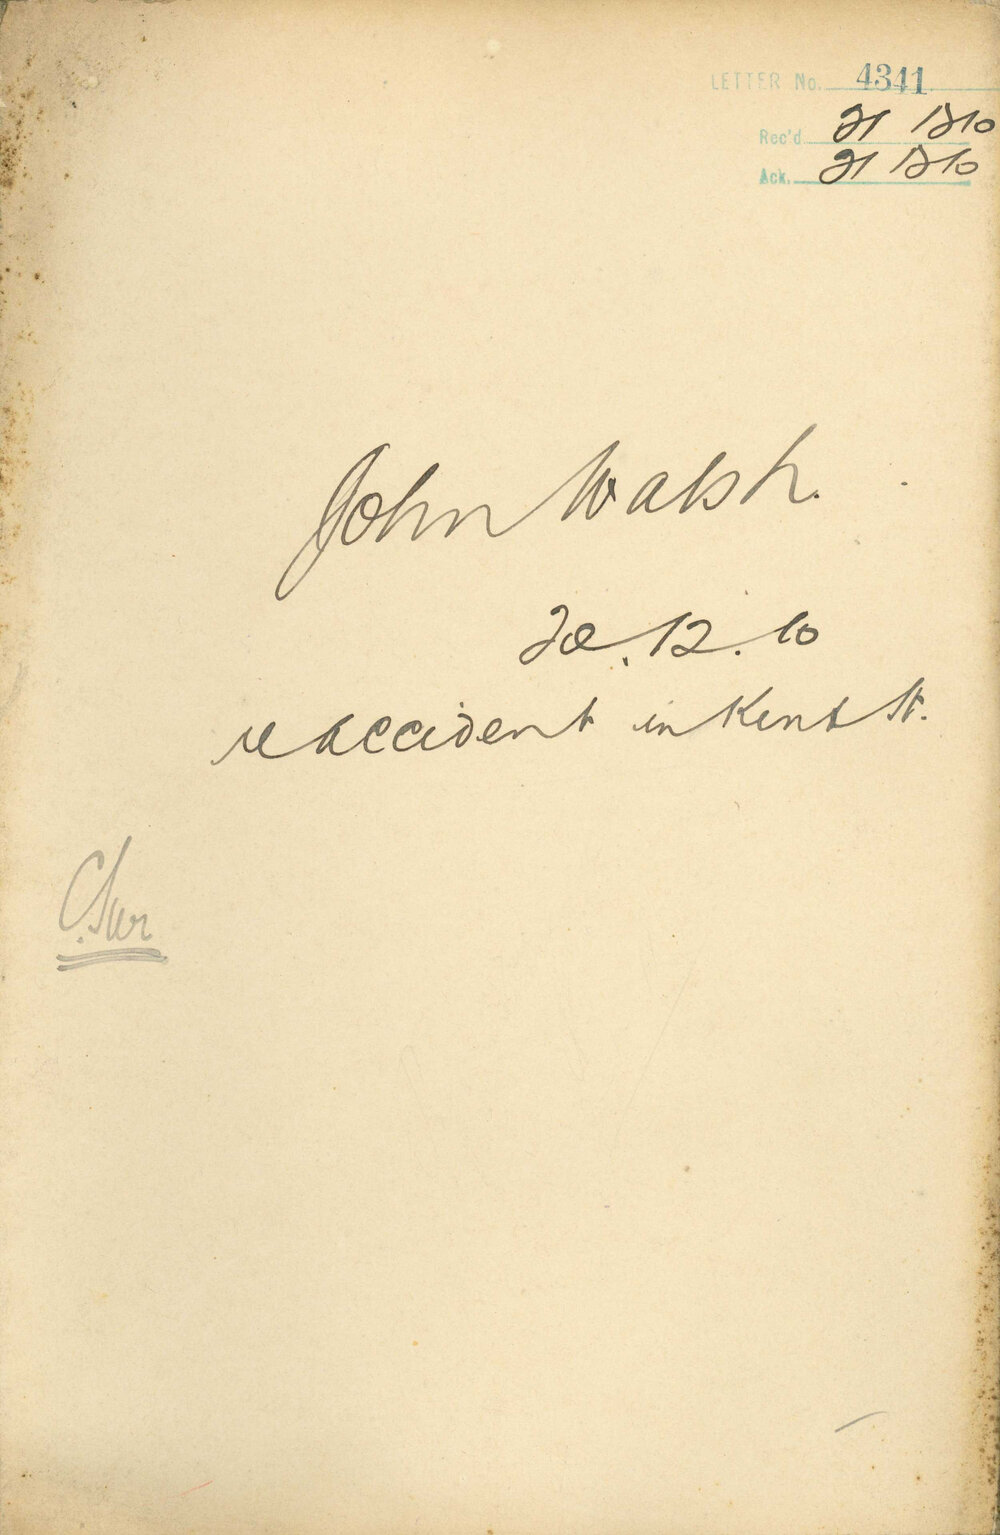 LETTER No. 4341
Rec'd 21 12 10
Ack. 21 12 10
John Walsh.
20.12.10
re accident in Kent St.
C. Sur